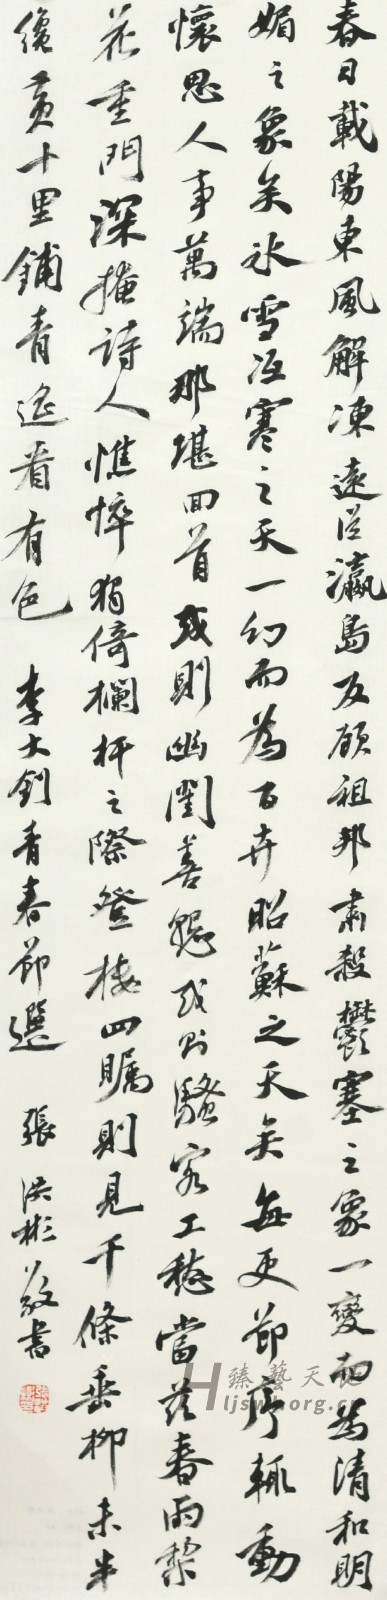 春日載陽東風解凍遠從瀛島反顧祖邦肅殺鬱塞之象一變而為清和明
媚之象矣冰雪沍寒之天一幻而為百卉昭蘇之天矣每更節序輒動
懷思人事萬端那堪回首或則幽閨善怨或則騷客工愁當茲春雨梨
花重門深掩詩人憔悴獨倚欄杆之際登樓四矚則見千條垂柳未半
纔黃十里鋪青遙看有色 李大釗青春節選 張洪彬敬書
臻藝天